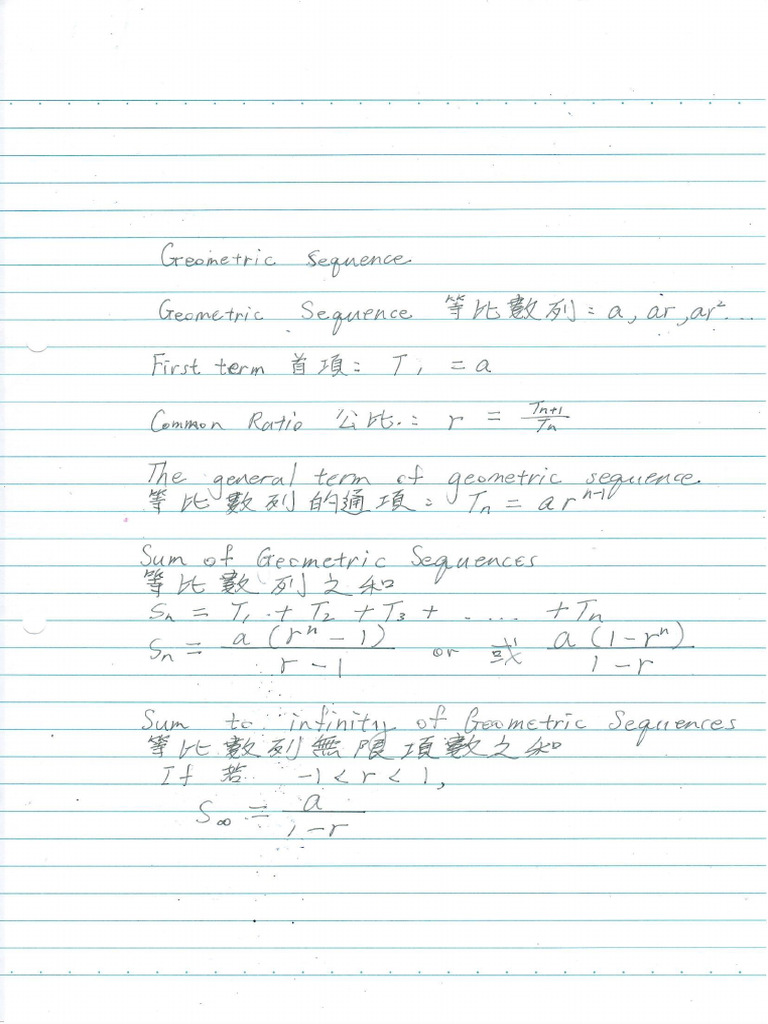 Geometric Sequence
Geometric Sequence 等比數列: a, ar, ar²...
First term 首項: T₁ = a
Common Ratio 公比: r = Tn+1/Tn
The general term of geometric sequence.
等比數列的通項: Tn = ar^(n-1)
Sum of Geometric Sequences
等比數列之和
Sn = T₁ + T₂ + T₃ + .... + Tn
Sn = a(rⁿ - 1)/(r - 1) or 或 a(1 - rⁿ)/(1 - r)
Sum to infinity of Geometric Sequences
等比數列無限項數之和
If 若 -1 < r < 1,
S∞ = a/(1 - r)